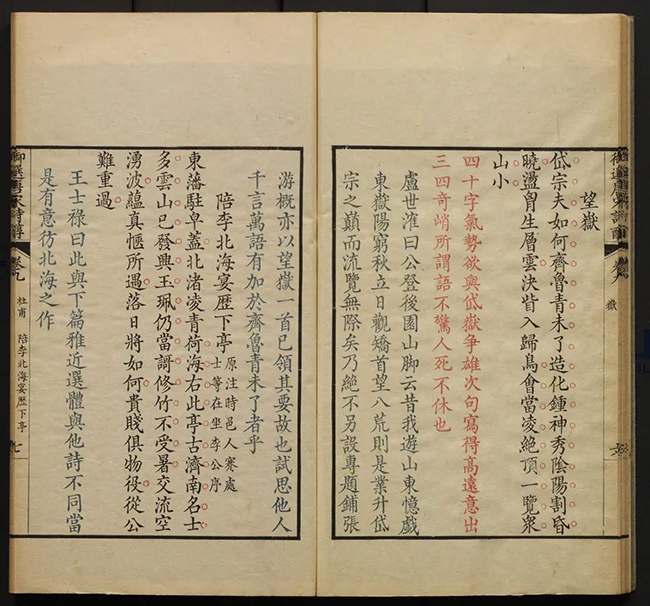 望嶽
岱宗夫如何齊魯青未了造化鍾神秀陰陽割昏
曉盪胷生層雲決眥入歸鳥會當凌絕頂一覽衆
山小
四十字氣勢欲與岱嶽爭雄次句寫得高遠意出
三四奇峭所謂語不驚人死不休也
盧世㴶曰公登後園山脚云昔我遊山東憶戲
東嶽陽窮秋立日觀矯首望八荒則是業升岱
宗之巔而流覽無際矣乃絕不另設專題鋪張
游概亦以望嶽一首已領其要故也試思他人
千言萬語有加於齊魯青未了者乎
陪李北海宴歷下亭 原注時邑人蹇處
士等在坐李公序
東藩駐皁蓋北渚凌青荷海右此亭古濟南名士
多雲山已發興玉珮仍當謌修竹不受暑交流空
湧波蘊真愜所遇落日將如何貴賤俱物役從公
難重過
王士禄曰此與下篇雅近選體與他詩不同當
是有意彷北海之作
御選唐宋詩醇 卷九 杜甫 陪李北海宴歷下亭 七